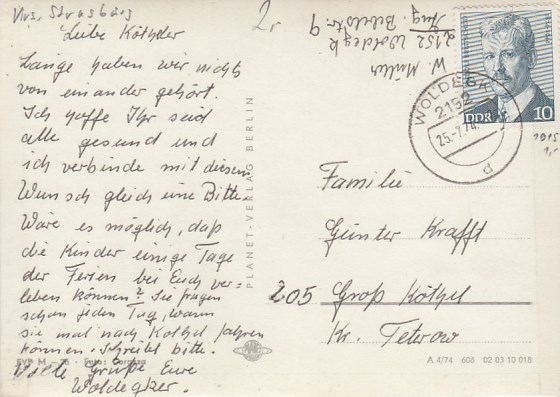 Krs. Strasburg
2r
Liebe Köthler
Lange haben wir nichts
von einander gehört.
Ich hoffe Ihr seid
alle gesund und
ich verbinde mit diesem
Wunsch gleich eine Bitte.
Wäre es möglich, daß
die Kinder einige Tage
der Ferien bei Euch ver-
leben können? Sie fragen
schon jeden Tag, wann
sie mal nach Köthel fahren
können. Schreibt bitte.
Viele Grüße Eure
Woldegker.
EVP M –,20 · Foto:
PLANET-VERLAG BERLIN
PLANET
W. Müller
2152 Woldegk
Aug. Bebelstr. 9
WOLDEGK
2152
25.-7.74
d
DDR 10
1915
1,-
Familie
Günter Krafft
205 Groß Köthel
Kr. Teterow
A 4/74 606 02 03 10 018